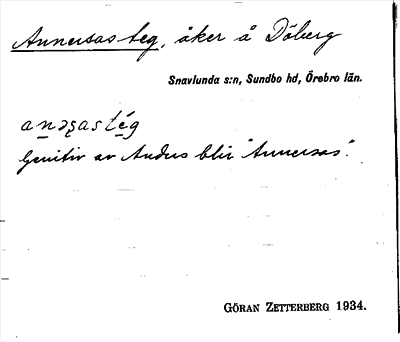 Annersas teg, åker å Döberg
Snavlunda s:n, Sundbo hd, Örebro län.
anəʂas tég
Genitiv av Anders blir "Annersas".
GÖRAN ZETTERBERG 1934.